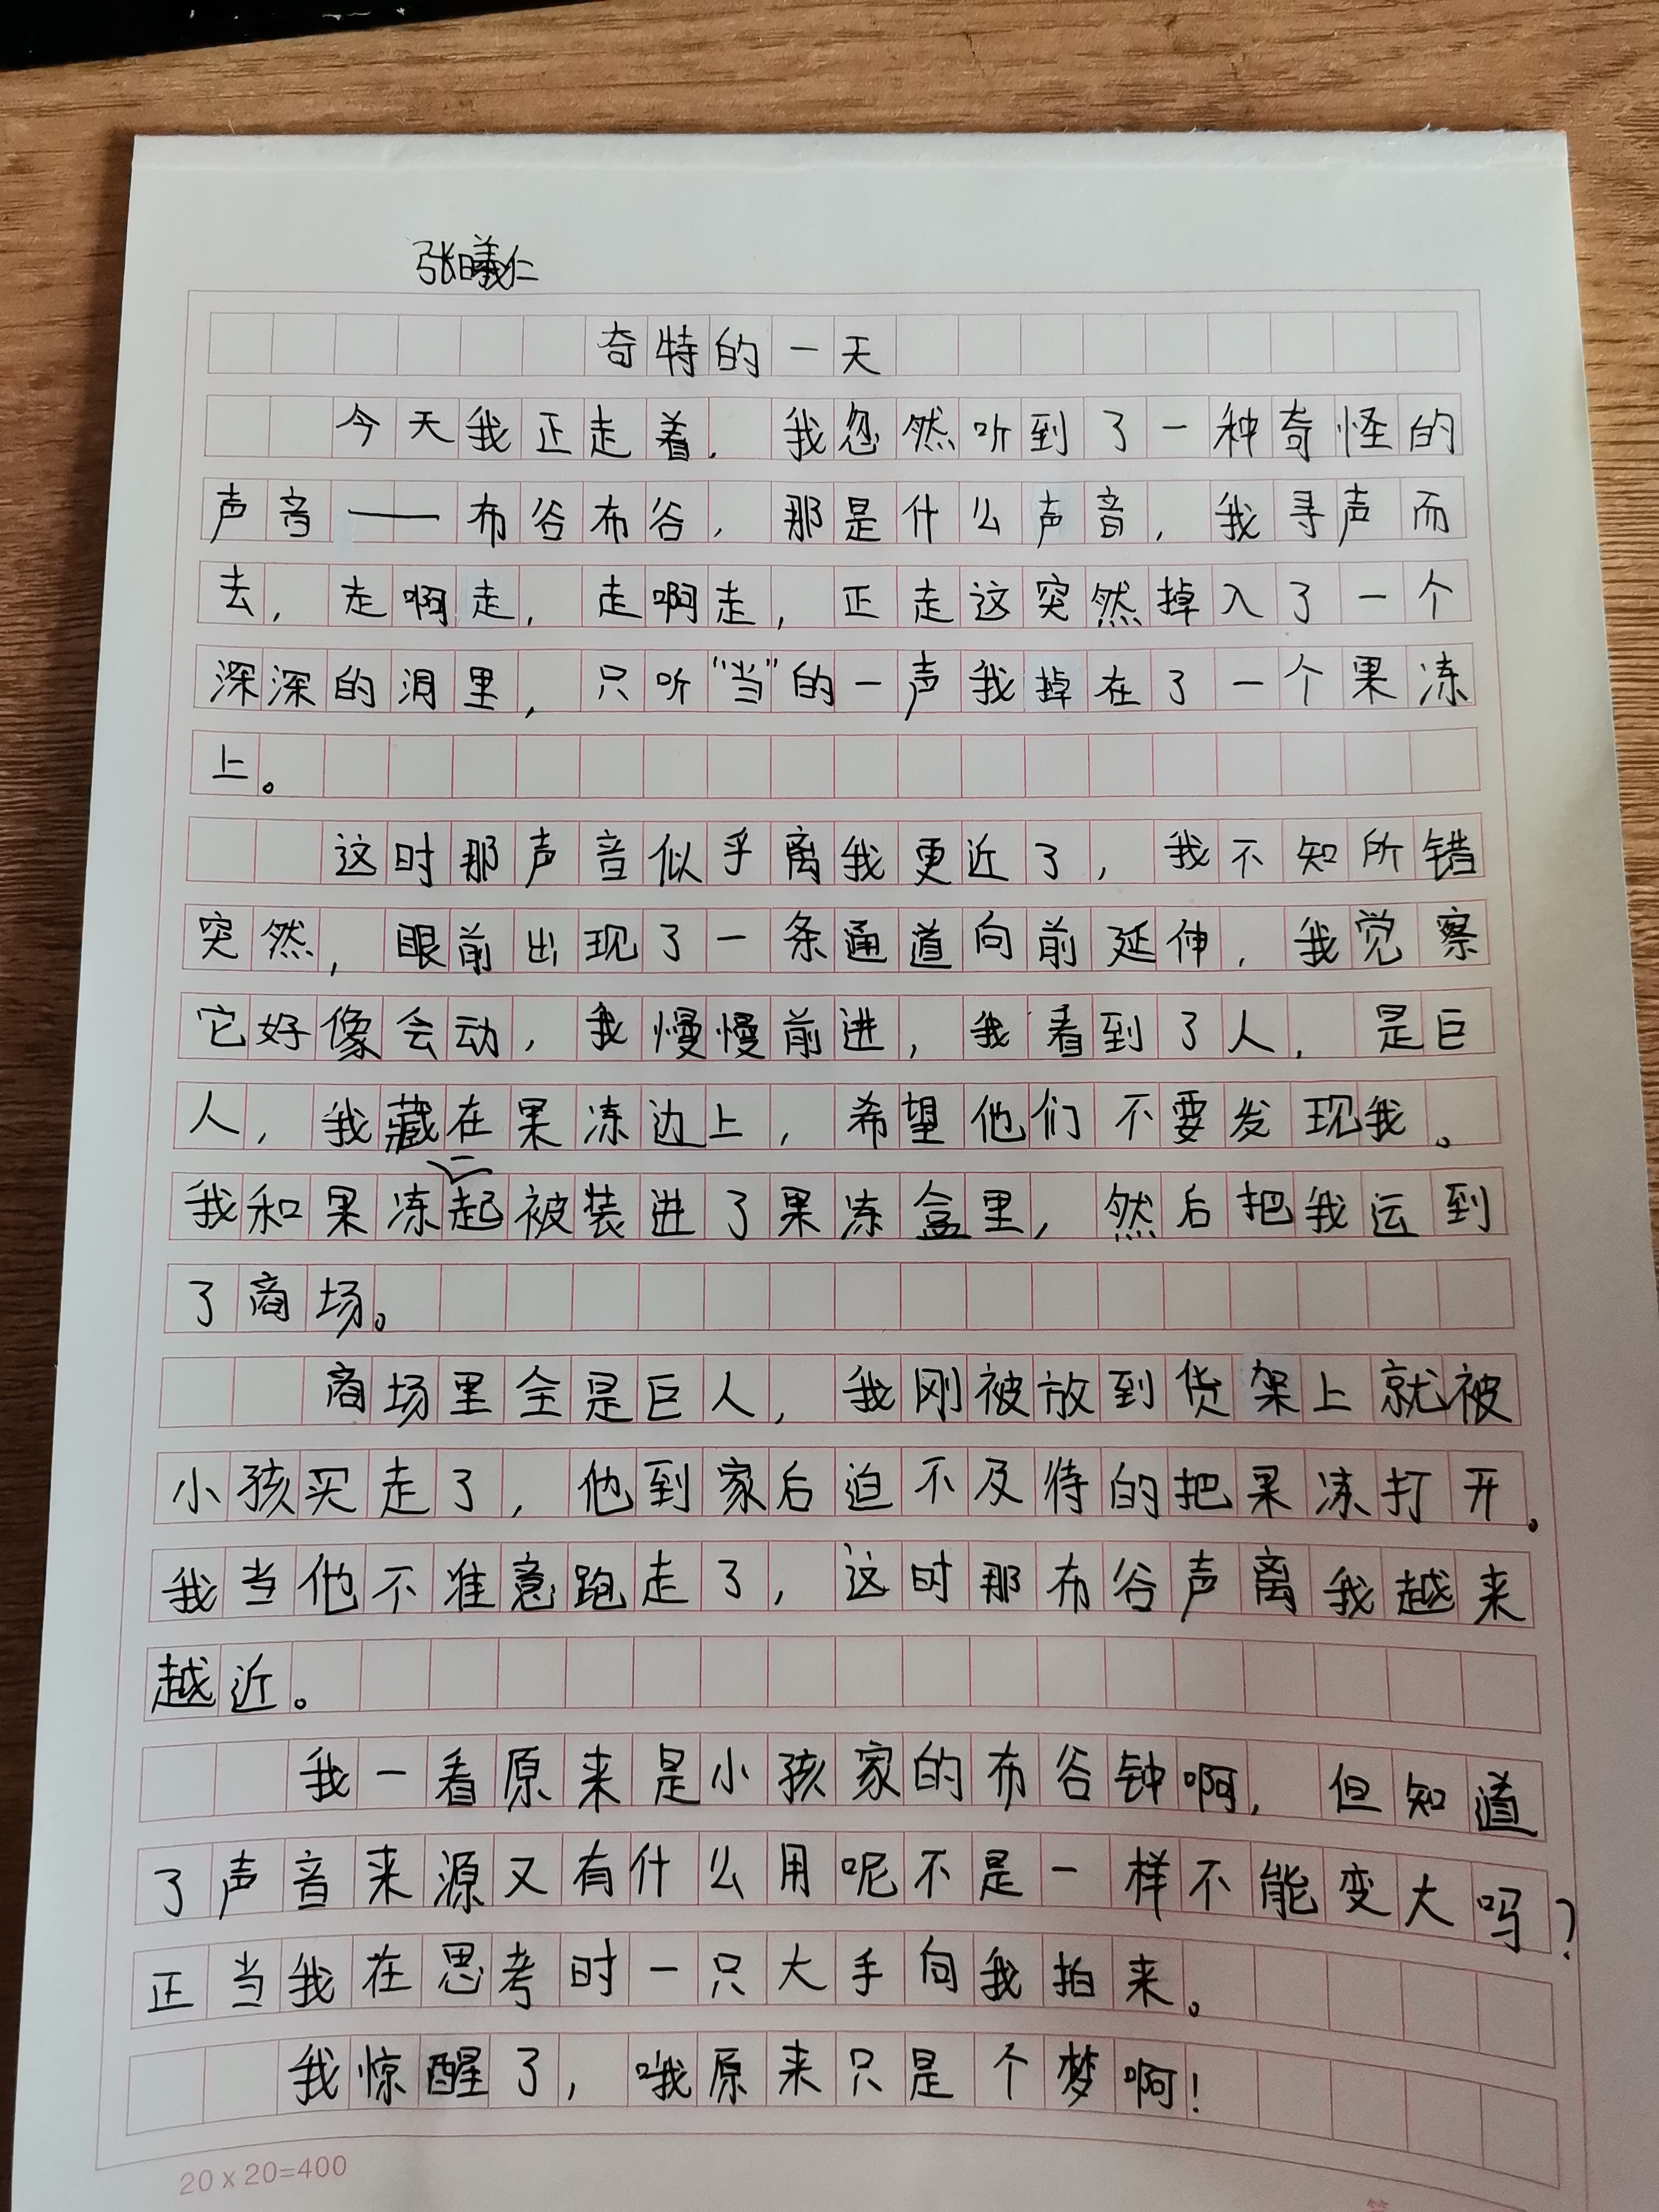 张曦仁
奇特的一天
今天我正走着，我忽然听到了一种奇怪的
声音——布谷布谷，那是什么声音，我寻声而
去，走啊走，走啊走，正走这突然掉入了一个
深深的洞里，只听“当”的一声我掉在了一个果冻
上。
这时那声音似乎离我更近了，我不知所错
突然，眼前出现了一条通道向前延伸，我觉察
它好像会动，我慢慢前进，我看到了人，是巨
人，我藏在果冻边上，希望他们不要发现我。
我和果冻一起被装进了果冻盒里，然后把我运到
了商场。
商场里全是巨人，我刚被放到货架上就被
小孩买走了，他到家后迫不及待的把果冻打开。
我当他不准意跑走了，这时那布谷声离我越来
越近。
我一看原来是小孩家的布谷钟啊，但知道
了声音来源又有什么用呢不是一样不能变大吗？
正当我在思考时一只大手向我拍来。
我惊醒了，哦原来只是个梦啊！
20×20=400